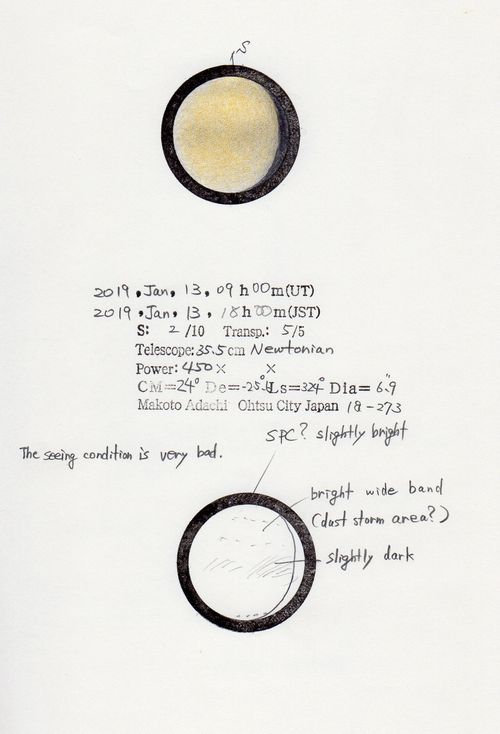 S
2019, Jan, 13, 09 h 00 m (UT)
2019, Jan, 13, 18 h 00 m (JST)
S: 2 /10 Transp.: 5/5
Telescope: 35.5 cm Newtonian
Power: 450 × ×
CM=24° De=-25° Ls=324° Dia= 6".9
Makoto Adachi Ohtsu City Japan 18-273
SPC? slightly bright
The seeing condition is very bad.
bright wide band
(dust storm area?)
slightly dark